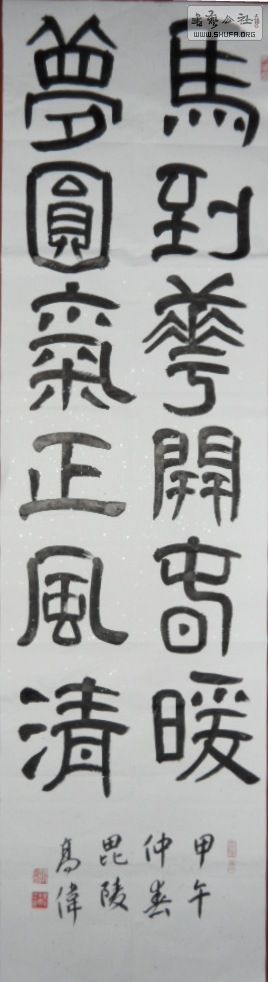 馬到華開春暖
夢圓氣正風清
甲午
仲春
毘陵
高偉
書藝公社
WWW.SHUFA.ORG